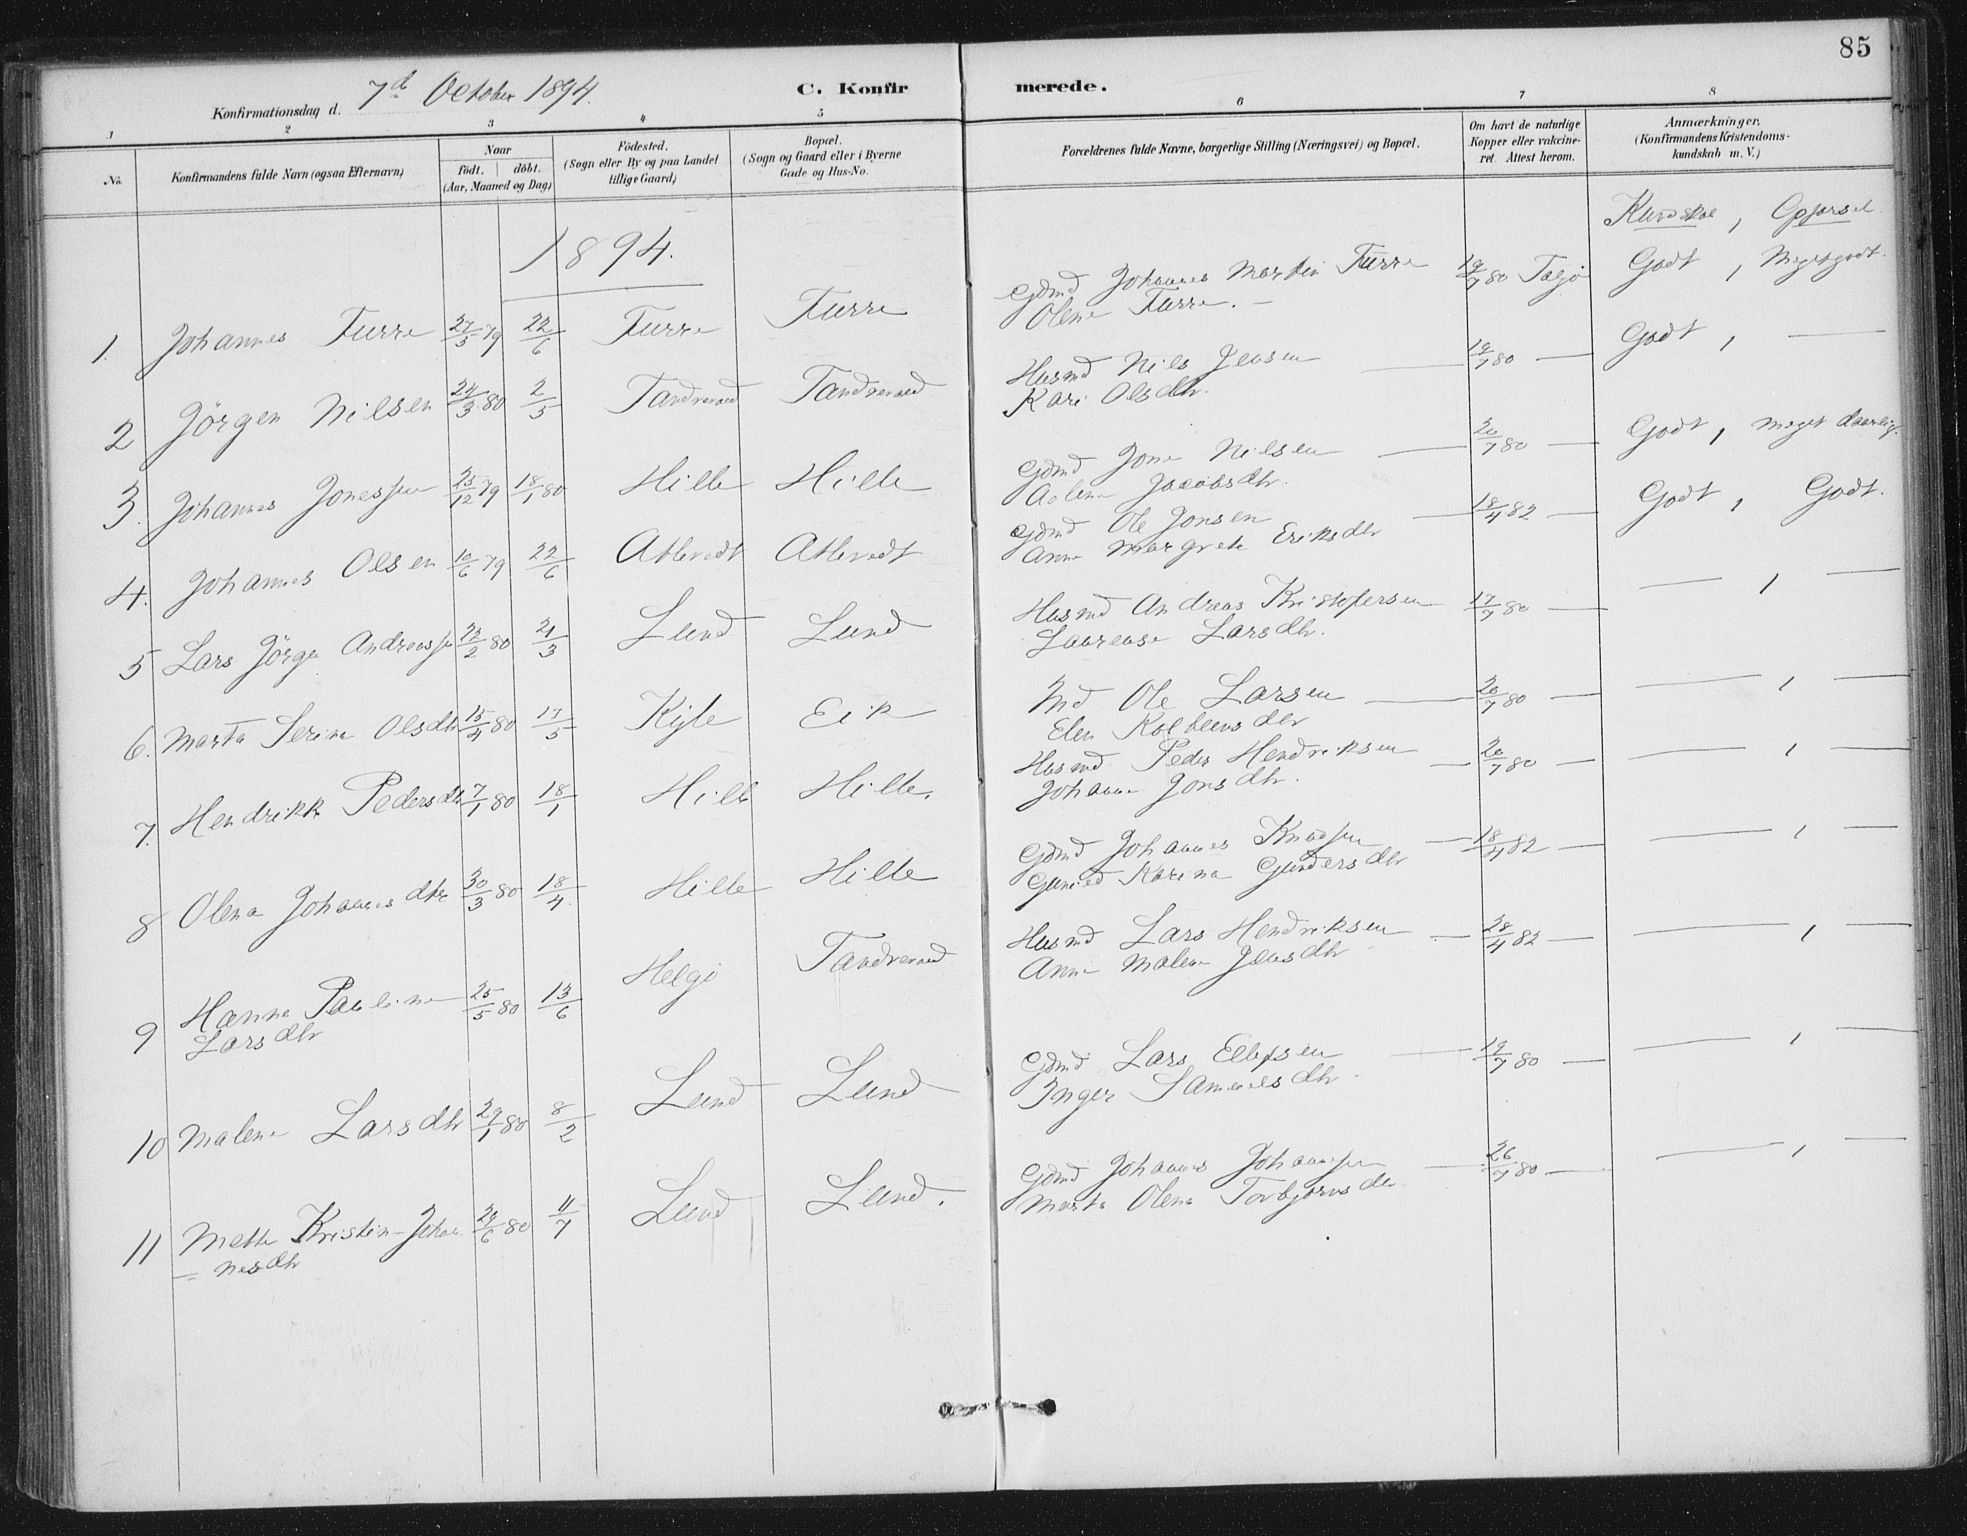 85
Konfirmationsdag d. 7d October 1894.
C. Konfirmerede.
1 2 3 4 5 6 7 8
No. Konfirmandens fulde Navn (ogsaa Efternavn)
Naar født. | døbt. (Aar, Maaned og Dag)
Födested. (Sogn eller By og paa Landet tillige Gaard)
Bopæl. (Sogn og Gaard eller i Byerne Gade og Hus-No.
Forældrenes fulde Navne, borgerlige Stilling (Næringsvei) og Bopæl.
Om havt de naturlige Kopper eller vakcineret. Attest herom.
Anmærkninger. (Konfirmandens Kristendomskundskab m. V.)
1894.
Kundskab, Opførsel
1. Johannes Furre 27/5 79 22/6 Furre Furre Gdmd Johannes Martin Furre 19/7 80 Godt, Megetgodt.
Olene Furre. —
2 Jörgen Nilsen 24/3 80 2/5 Tandrevold Tandrevold Husmd Nils Jensen — 19/7 80 — Godt, —
Kari Olsdtr.
3. Johannes Jonessen 25/12 79 18/1 80 Hille Hille Gdmd Jone Nilsen — 20/7 80 — Godt, meget daarlig.
Jacobsdtr.
4. Johannes Olsen 10/6 79 22/6 Atlevedt Atlevedt Gdmd Ole Jonsen — 18/4 82 — Godt, Godt.
Anne Margrete Eriksdtr
5 Lars Jörgen Andreassen 22/2 80 21/3 Lund Lund Husmd Andreas Kristofersen 17/7 80 — — , —
Laurense Larsdtr.
6. Marta Serine Olsdtr 15/4 80 17/5 Kyle Eik Md Ole Larsen — 20/7 80 — — , —
Elen Kolbensdtr
7. Hendrikke Pedersdtr 7/1 80 18/1 Hille Hille. Husmd Peder Hendriksen — 20/7 80 — — , —
Johanne Jonsdtr.
8 Olena Johannesdtr 30/3 80 18/4 Hille Hille Gdmd Johannes Knudsen — 18/4 82 — — , —
Gunild Karina Gundersdtr
9 Hanna Pauline 25/5 80 13/6 Helgö Tandrevold Husmd Lars Hendriksen — 28/4 82 — — , —
Larsdtr Anne Malene Jensdtr
10 Malene Larsdtr 29/1 80 8/2 Lund Lund Gdmd Lars Ellefsen — 19/7 80 — — , —
Inger Samuelsdtr
11 Mette Kristine Johan 29/6 80 11/7 Lund Lund. Gdmd Johannes Johannessen — 26/7 80 — — , —
= nesdtr Marta Olena Torbjørnsdtr